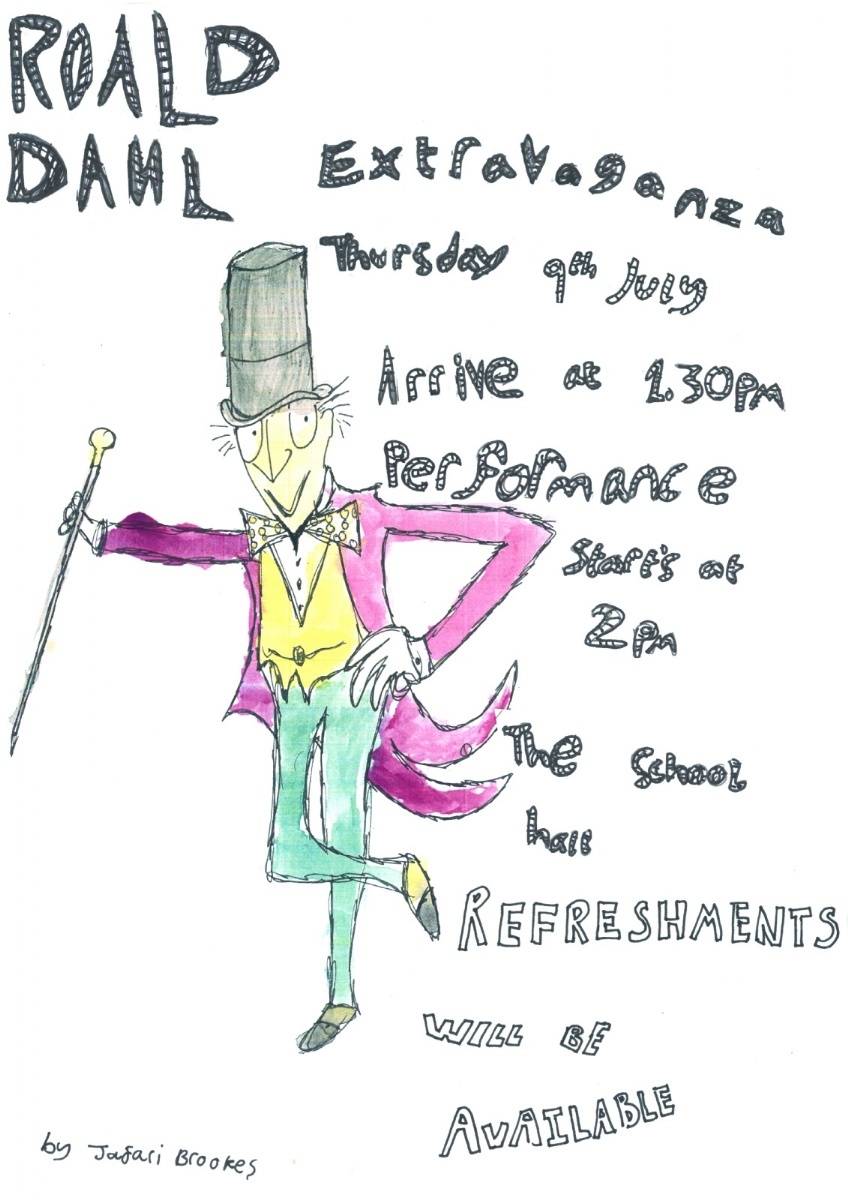 ROALD
DAHL
Extravaganza
Thursday 9th July
Arrive at 1.30PM
Performance
Start's at
2PM
The School
hall
REFRESHMENTS
WILL BE
AVAILABLE
by Jafari Brookes